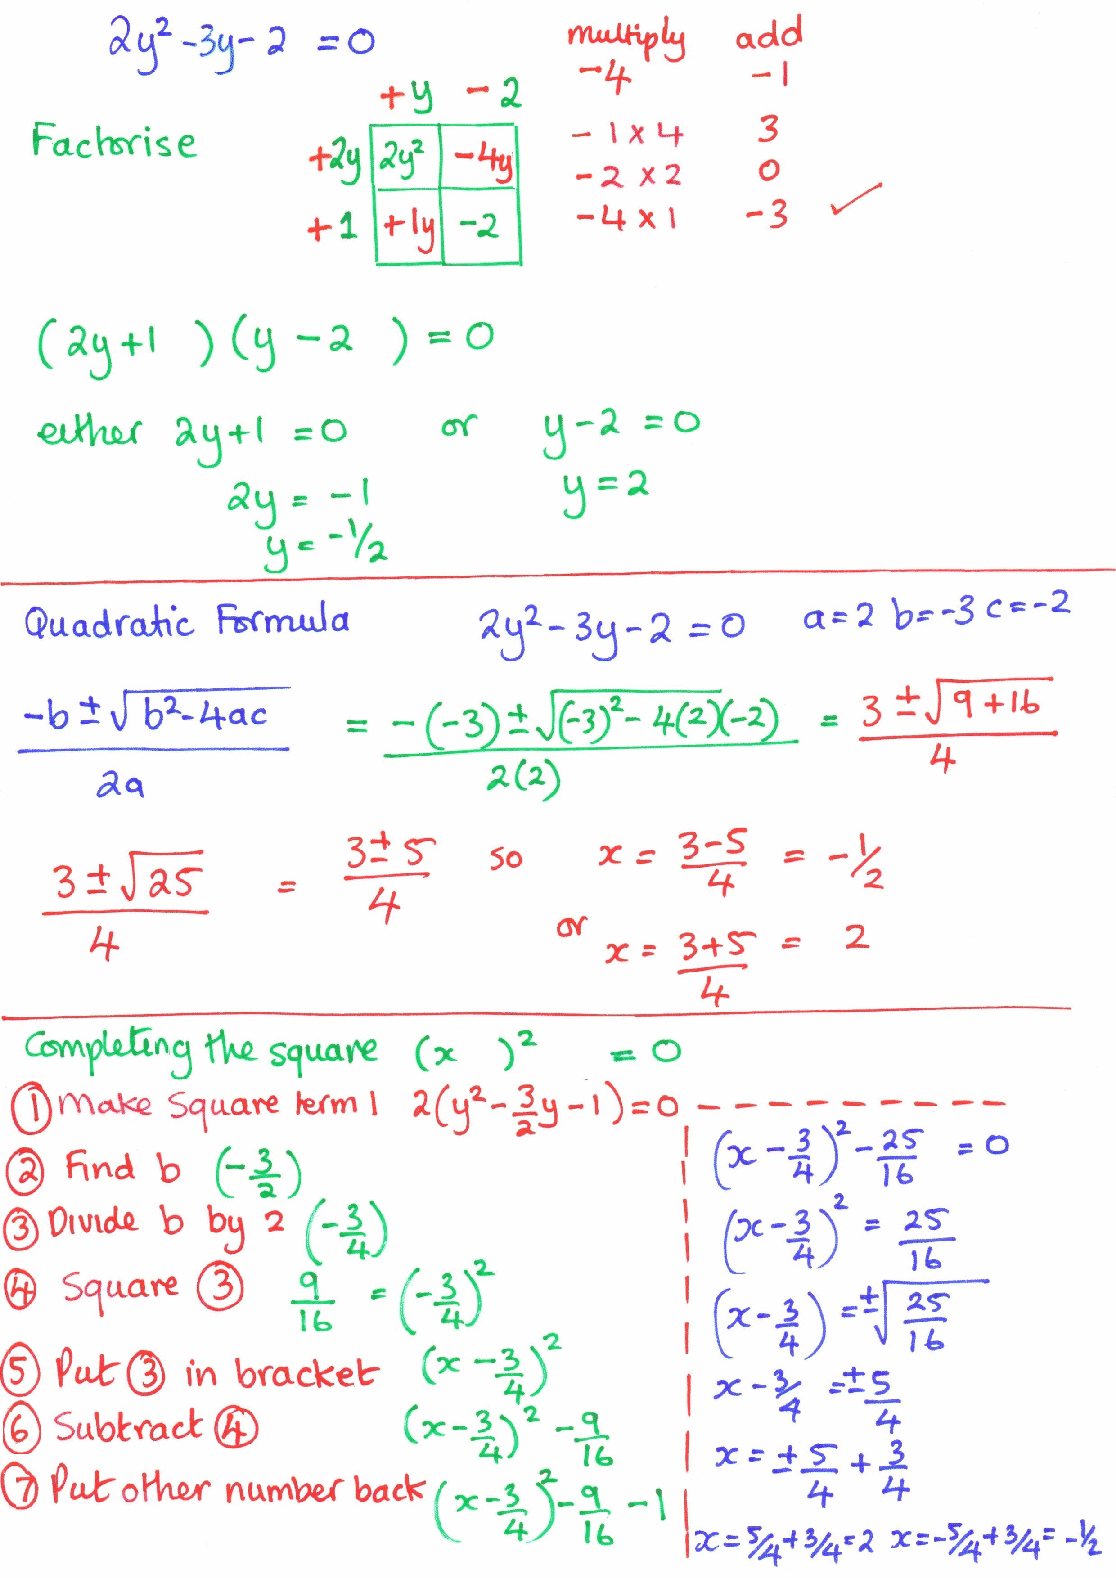 2y² -3y - 2 = 0 multiply add
-4 -1
+y - 2
Factorise +2y 2y² -4y -1 x 4 3
-2 x 2 0
+1 +1y -2 -4 x 1 -3 ✓
(2y+1 ) (y - 2 ) = 0
either 2y+1 = 0 or y-2 = 0
2y = -1 y = 2
y = -1/2
Quadratic Formula 2y² - 3y - 2 = 0 a=2 b=-3 c=-2
(-b ± √(b²-4ac))/2a = (-(-3) ± √((-3)² - 4(2)(-2)))/2(2) = (3 ± √(9+16))/4
(3 ± √25)/4 = (3 ± 5)/4 so x = (3-5)/4 = -1/2
or x = (3+5)/4 = 2
Completing the square (x )² = 0
① Make Square term 1 2(y² - 3/2y - 1) = 0
② Find b (-3/2)
③ Divide b by 2 (-3/4)
④ Square ③ 9/16 = (-3/4)²
⑤ Put ③ in bracket (x - 3/4)²
⑥ Subtract ④ (x - 3/4)² - 9/16
⑦ Put other number back (x - 3/4)² - 9/16 - 1
(x - 3/4)² - 25/16 = 0
(x - 3/4)² = 25/16
(x - 3/4) = ±√(25/16)
x - 3/4 = ±5/4
x = ±5/4 + 3/4
x = 5/4 + 3/4 = 2 x = -5/4 + 3/4 = -1/2